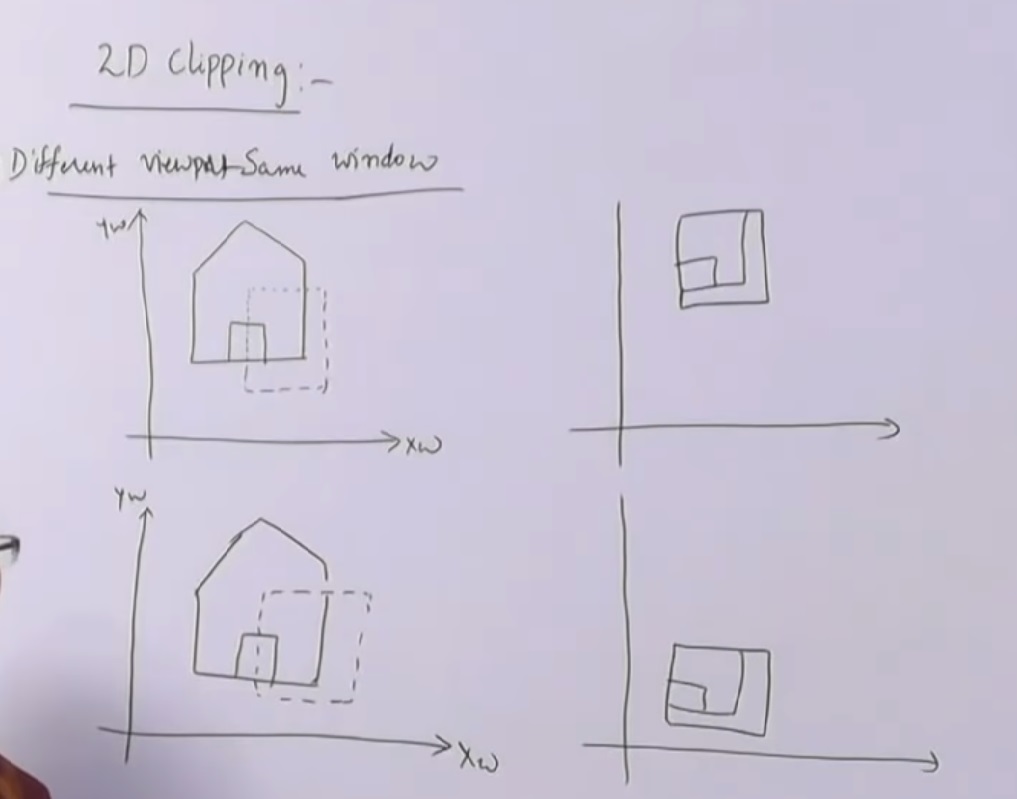 2D Clipping:-
Different viewport Same window
Yw
Xw
Yw
Xw